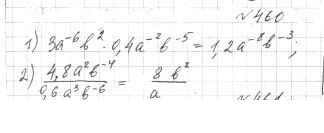 №460
1) 3a⁻⁶b² · 0,4a⁻²b⁻⁵ = 1,2a⁻⁸b⁻³;
2) 4,8a²b⁻⁴ / 0,6a³b⁻⁶ = 8b² / a